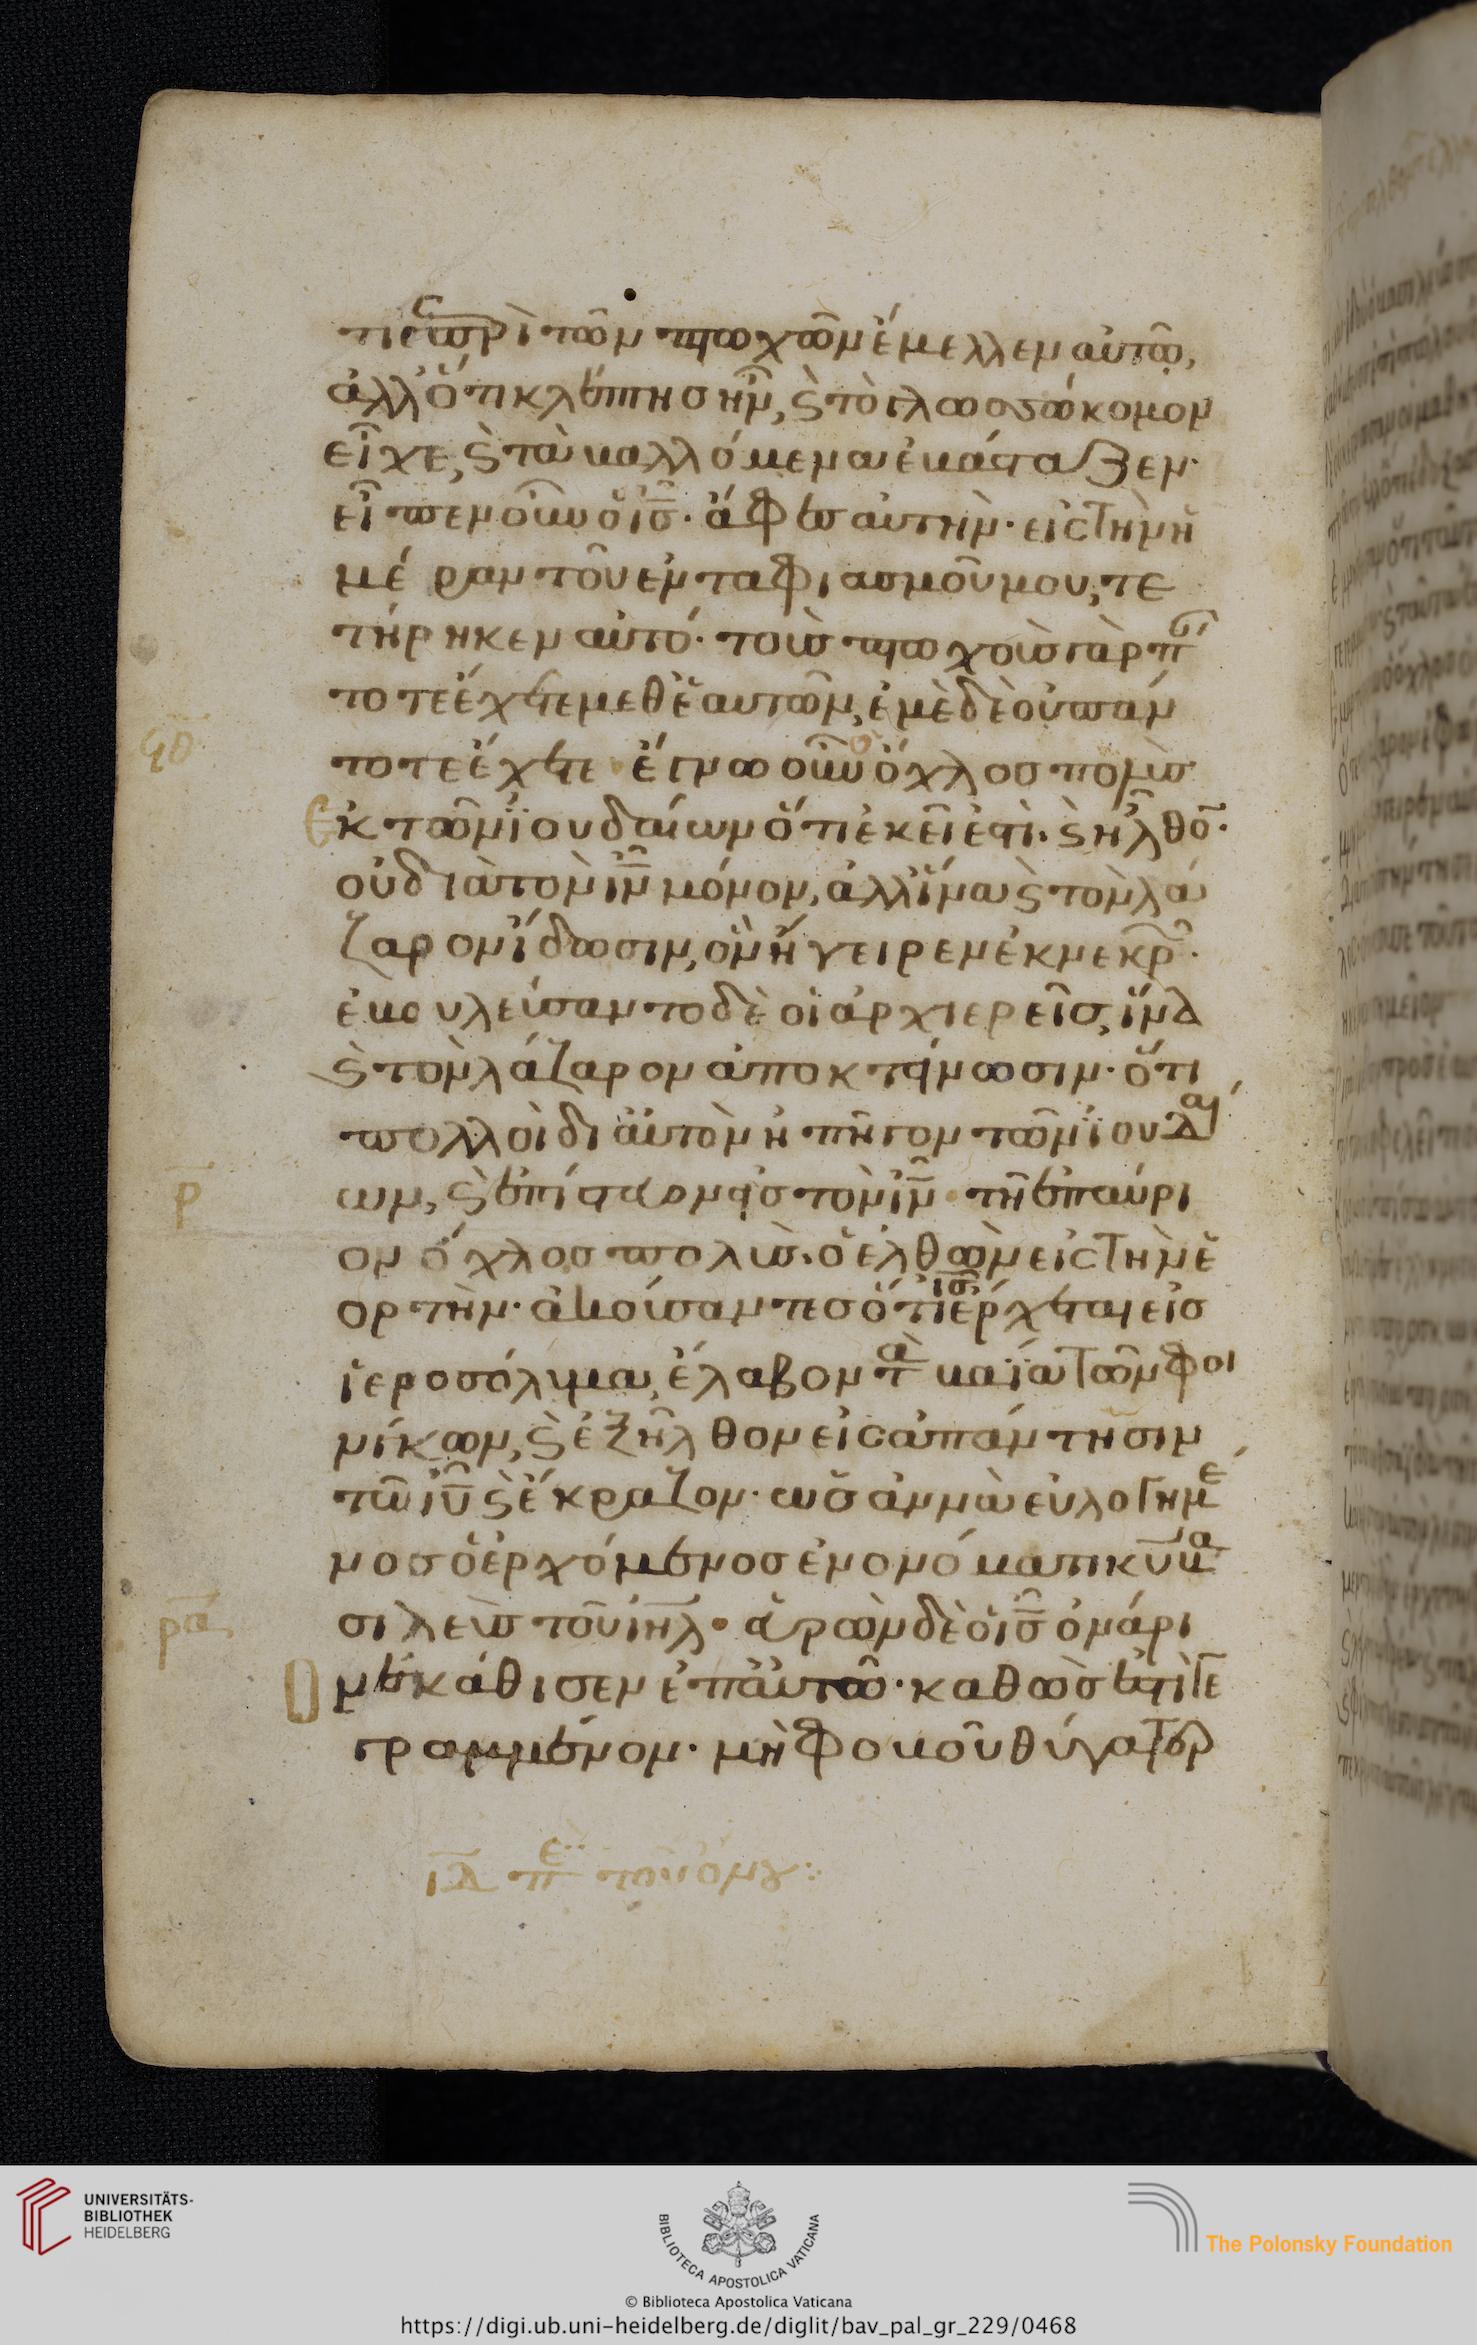 τι περὶ τῶν πτωχῶν ἔμελλεν αὐτῶ,
ἀλλ' ὅτι κλέπτης ἦν, ϛ τὸ γλωσσόκομον
εἶχε, ϛ τὰ βαλλόμενα ἐβάσταζεν·
εἶπεν οὖν ὁ ις̅· ἄφες αὐτὴν· εἰς τὴν ἡ
μέραν τοῦ ἐνταφιασμοῦ μου, τε
τήρηκεν αὐτό· τοὺς πτωχοὺς γὰρ πάν
τοτε ἔχετε μεθ' ἑαυτῶν, ἐμὲ δὲ οὐ πάν
τοτε ἔχετε· ἔγνω οὖν ὄχλος πολὺς
ἐκ τῶν ϊουδαίων ὅτι ἐκεῖ ἐστι· ϛ ἦλθο̅·
οὐ διὰ τὸν ιν̅ μόνον, ἀλλ' ἵνα ϛ τὸν λά
ζαρον ἴδωσιν, ὃν ἤγειρεν ἐκ νεκρ̅·
ἐβουλεύσαντο δὲ οἱ ἀρχιερεῖς, ἵνα
ϛ τὸν λάζαρον ἀποκτείνωσιν· ὅτι
πολλοὶ δι' αὐτὸν ὑπῆγον τῶν ϊουδαί
ων, ϛ ἐπίστευον εἰς τὸν ιν̅· τῆ ἐπαύρι
ον ὄχλος πολὺς ὁ ἐλθὼν εἰς τὴν ἑ
ορτὴν· ἀκούσαντες ὅτι ις̅ ἔρχεται εἰς
ἱεροσόλυμα, ἔλαβον τὰ βαΐα τῶν φοι
νίκων, ϛ ἐξῆλθον εἰς ἀπάντησιν
τῶ ιυ̅ ϛ ἔκραζον· ὡσαννὰ εὐλογημέ
νος ὁ ἐρχόμενος ἐν ὀνόματι κυ̅ βα
σιλεὺς τοῦ ιηλ̅· εὑρὼν δὲ ὁ ις̅ ὀνάρι
ον ἐκάθισεν ἐπ' αὐτῶ· καθὼς ἐστὶ γε
γραμμένον· μὴ φοβοῦ θύγατερ
ϟθ
ρ̅
ρα̅
ια̅ πε τοῦ ὄνου:
UNIVERSITÄTS-
BIBLIOTHEK
HEIDELBERG
BIBLIOTECA APOSTOLICA VATICANA
The Polonsky Foundation
© Biblioteca Apostolica Vaticana
https://digi.ub.uni-heidelberg.de/diglit/bav_pal_gr_229/0468